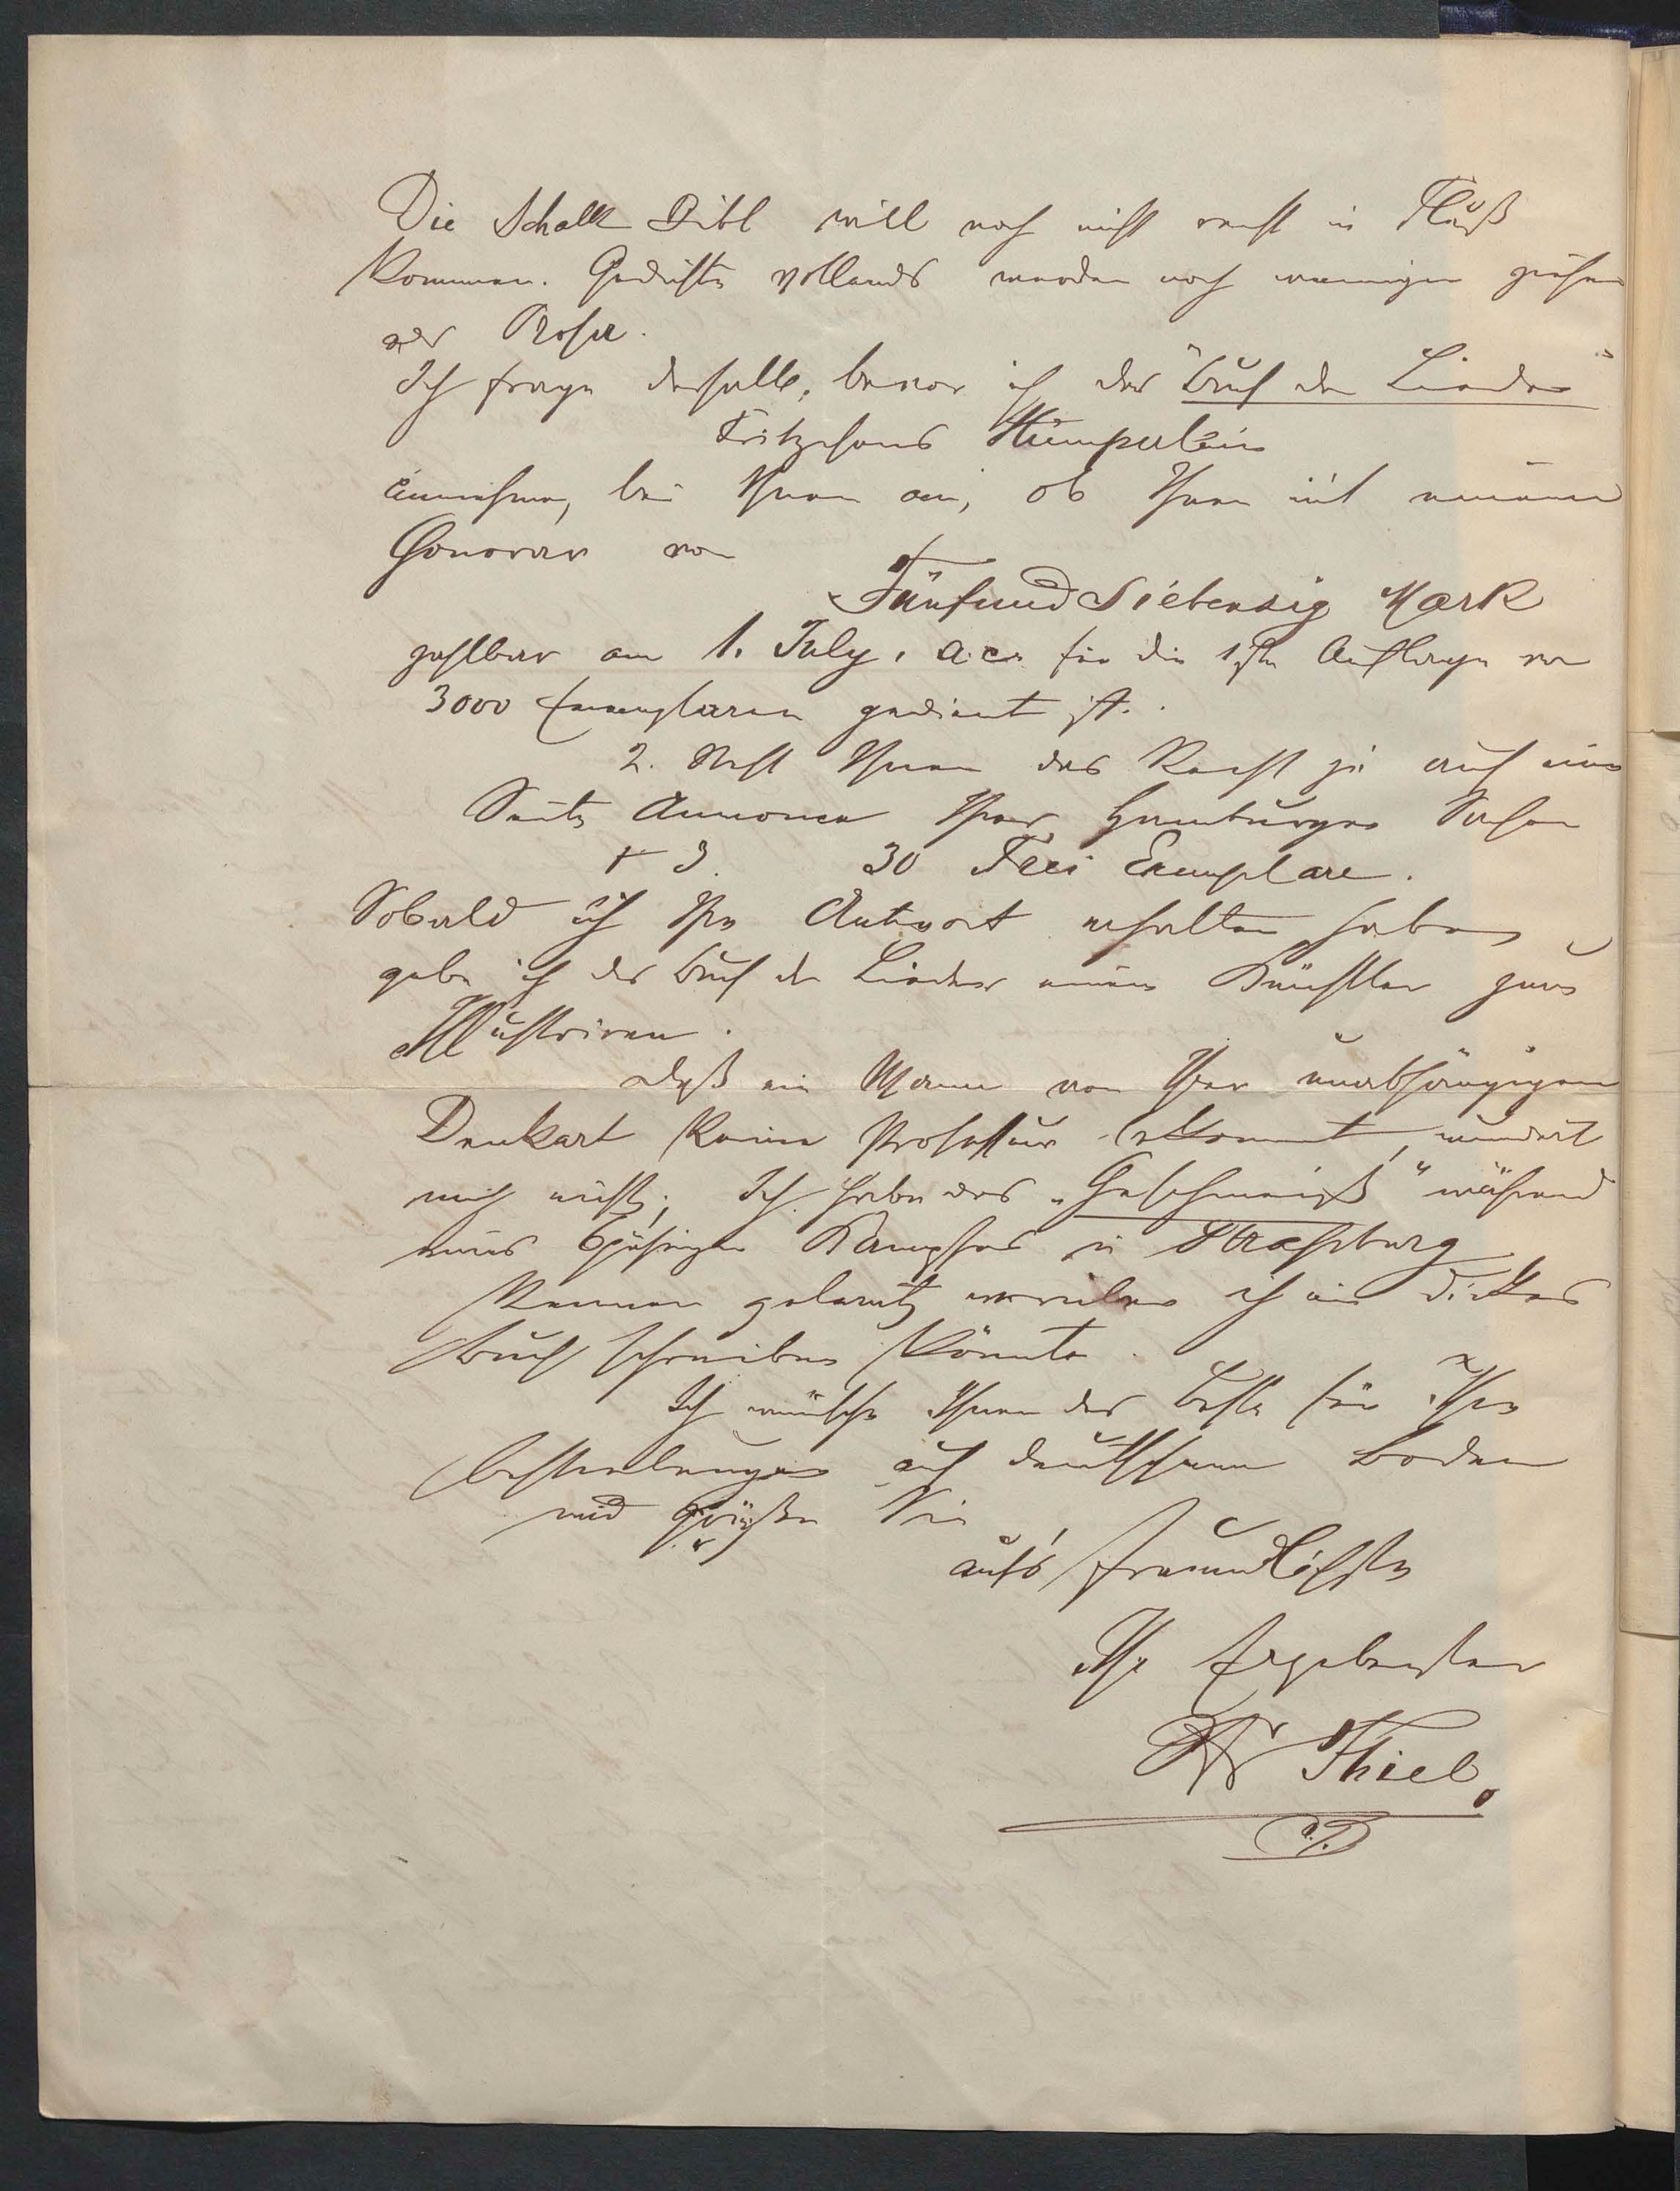 Die Schalk Bibl will noch nicht recht in Fluß
kommen. Gedichte vollends werden noch weniger ziehen
als Prosa.
Ich frage deshalb, bevor ich das "Buch der Lieder"
Fritzchens Hümperlein
annehme, bei Ihnen an, ob Ihnen mit einem
Honorar von
Fünfund Siebenzig Mark
zahlbar am 1. July, a.c. für die 1ste Auflage von
3000 Exemplaren gedient ist.
2. steht Ihnen das Recht zu auf eine
Seite Annonce Ihrer Hamburger Sachen
+ 3. 30 Frei Exemplare.
Sobald ich Ihre Antwort erhalten habe,
gebe ich das Buch der Lieder einem Künstler zum
Illustriren.
Daß ein Mann von Ihrer unabhängigen
Denkart keine Professur bekommt, wundert
mich nicht; Ich habe das "Geschmeiß" während
eines 6jährigen Kampfes in Straßburg
kennen gelernt, worüber ich ein dickes
Buch schreiben könnte.
Ich wünsche Ihnen das Beste für Ihre
Bestrebungen auf deutschem Boden
und grüße Sie
aufs freundlichste
Ihr Ergebenster
Thiel.